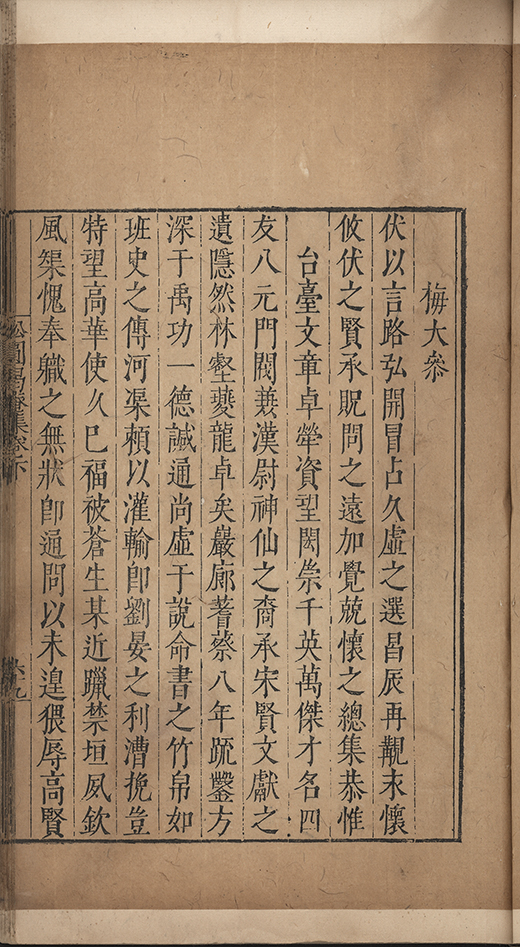 梅大參
伏以言路弘開冒占久虛之選昌辰再覯末懷
攸伏之賢承貺問之遠加覺兢懷之總集恭惟
台臺文章卓犖資望閎崇千英萬傑才名四
友八元門閥兼漢尉神仙之裔承宋賢文獻之
遺隱然林壑夔龍卓矣巖廊蓍蔡八年疏鑿方
深于禹功一德諴通尚虛于說命書之竹帛如
班史之傳河渠賴以灌輸卽劉晏之利漕輓豈
特望高華使久巳福被蒼生某近躐禁垣夙欽
風榘愧奉職之無狀卽通問以未遑猥辱高賢